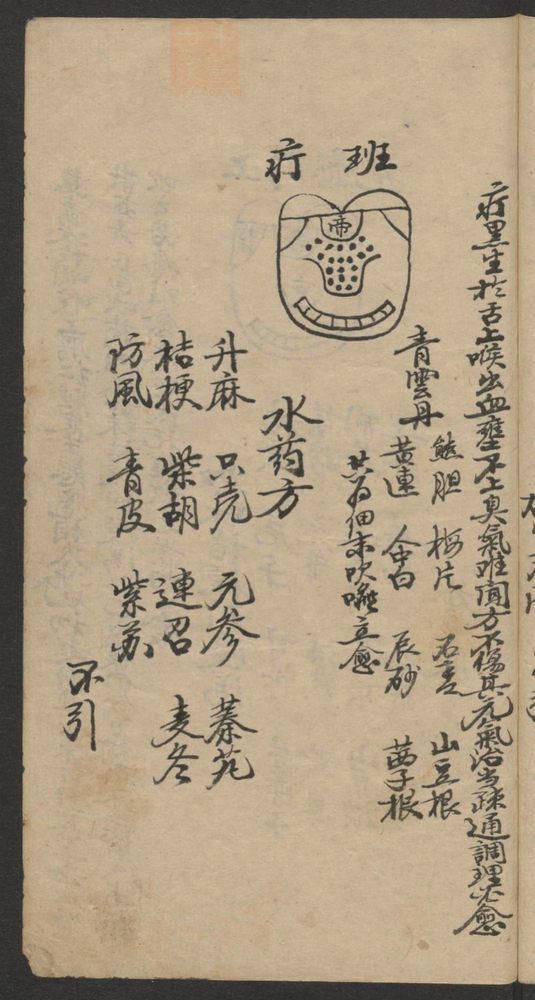 班疔
帝
疔黑生於舌上喉出血壅不上臭氣难聞方不傷其元氣治当疎通調理必愈
青雲丹
熊胆 梅片 石膏 山豆根
黄連 人中白 辰砂 茜子根
共为细末吹喉立愈
水药方
升麻 只壳 元参 蓁艽
桔梗 柴胡 連召 麦冬
防風 青皮 紫苏
不引